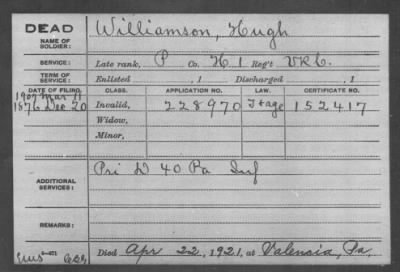 DEAD
NAME OF
SOLDIER:
Williamson, Hugh
SERVICE:
Late rank, P Co. H. 1 Reg't V.R.C.
TERM OF
SERVICE:
Enlisted , 1 Discharged , 1
DATE OF FILING. CLASS. APPLICATION NO. LAW. CERTIFICATE NO.
1907 Mar 11
1876 Dec 20 Invalid, 228970 J + age 152417
Widow,
Minor,
ADDITIONAL
SERVICES:
Pri D 40 Pa Inf
REMARKS:
Died Apr 22, 1921, at Valencia, Pa.